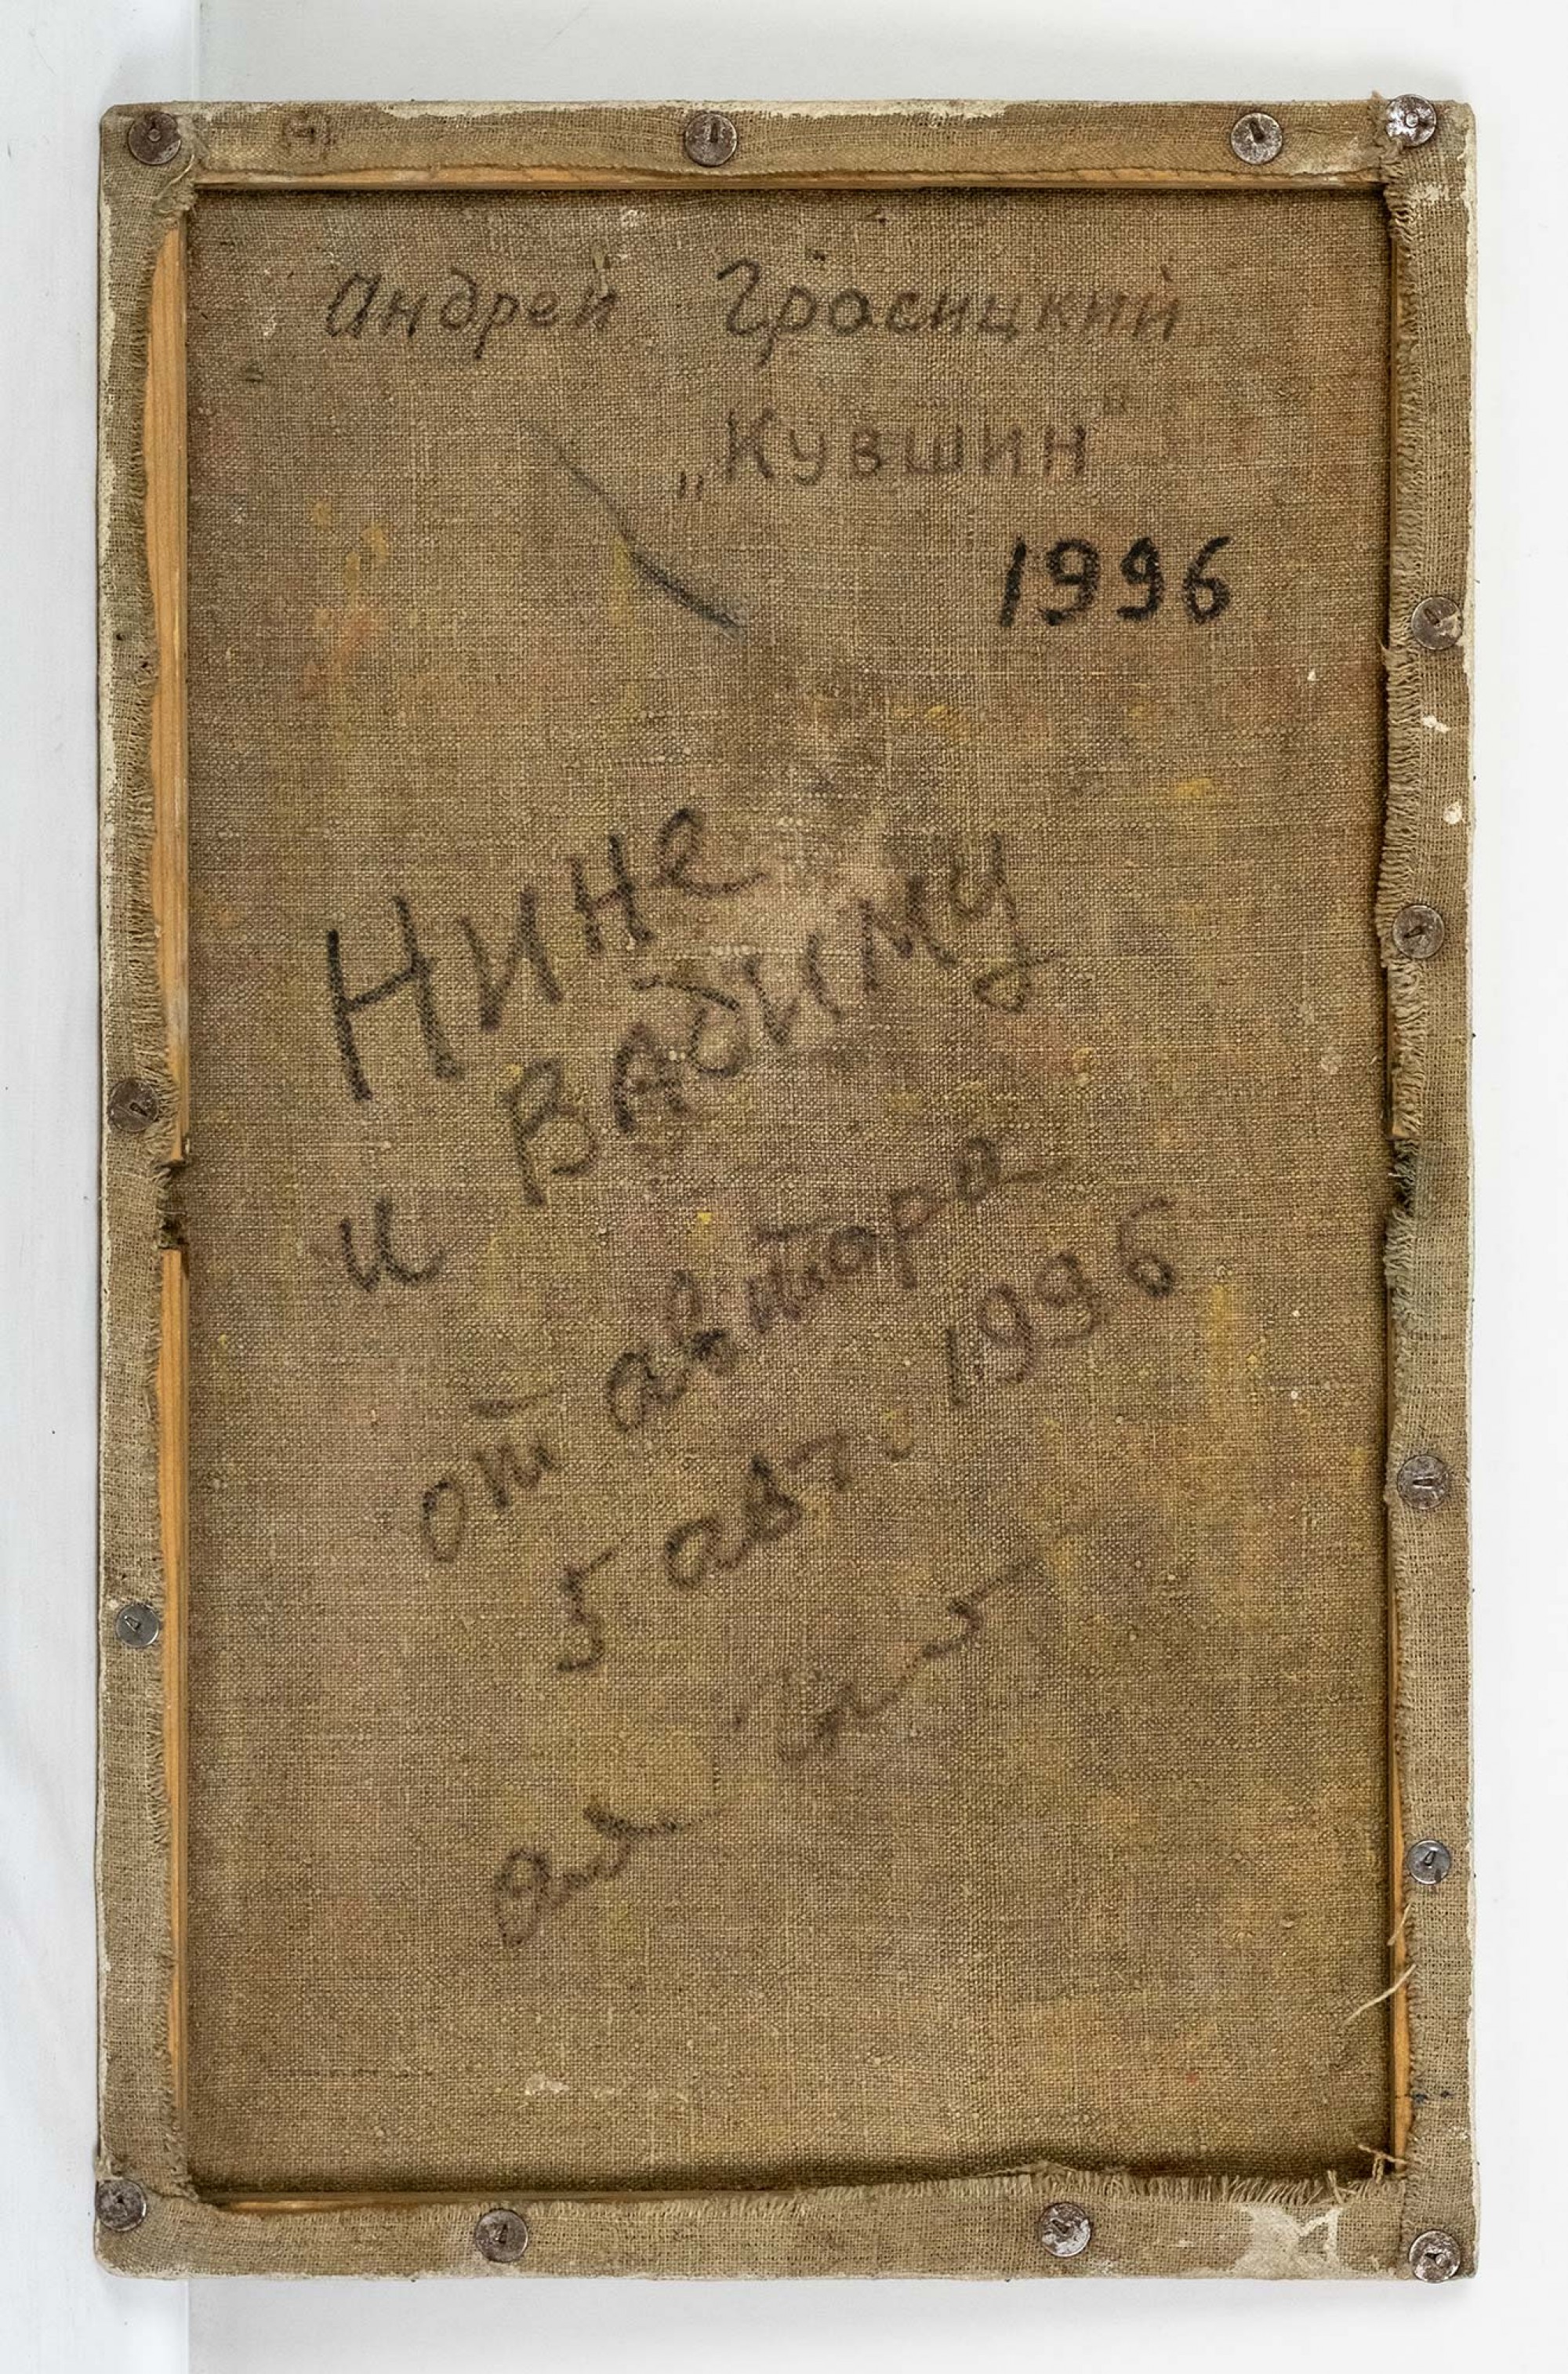 Андрей Гросицкий
„Кувшин"
1996
Нине
и Вадиму
от автора
5 авг. 1996